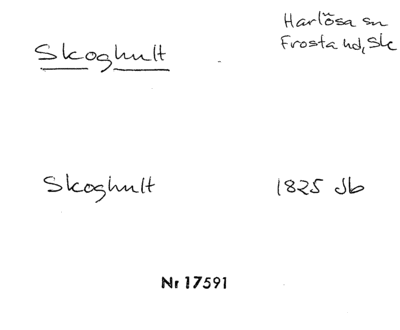 Skoghult
Harlösa sn
Frosta hd, Sk
Skoghult
1825 Jb
Nr 17591